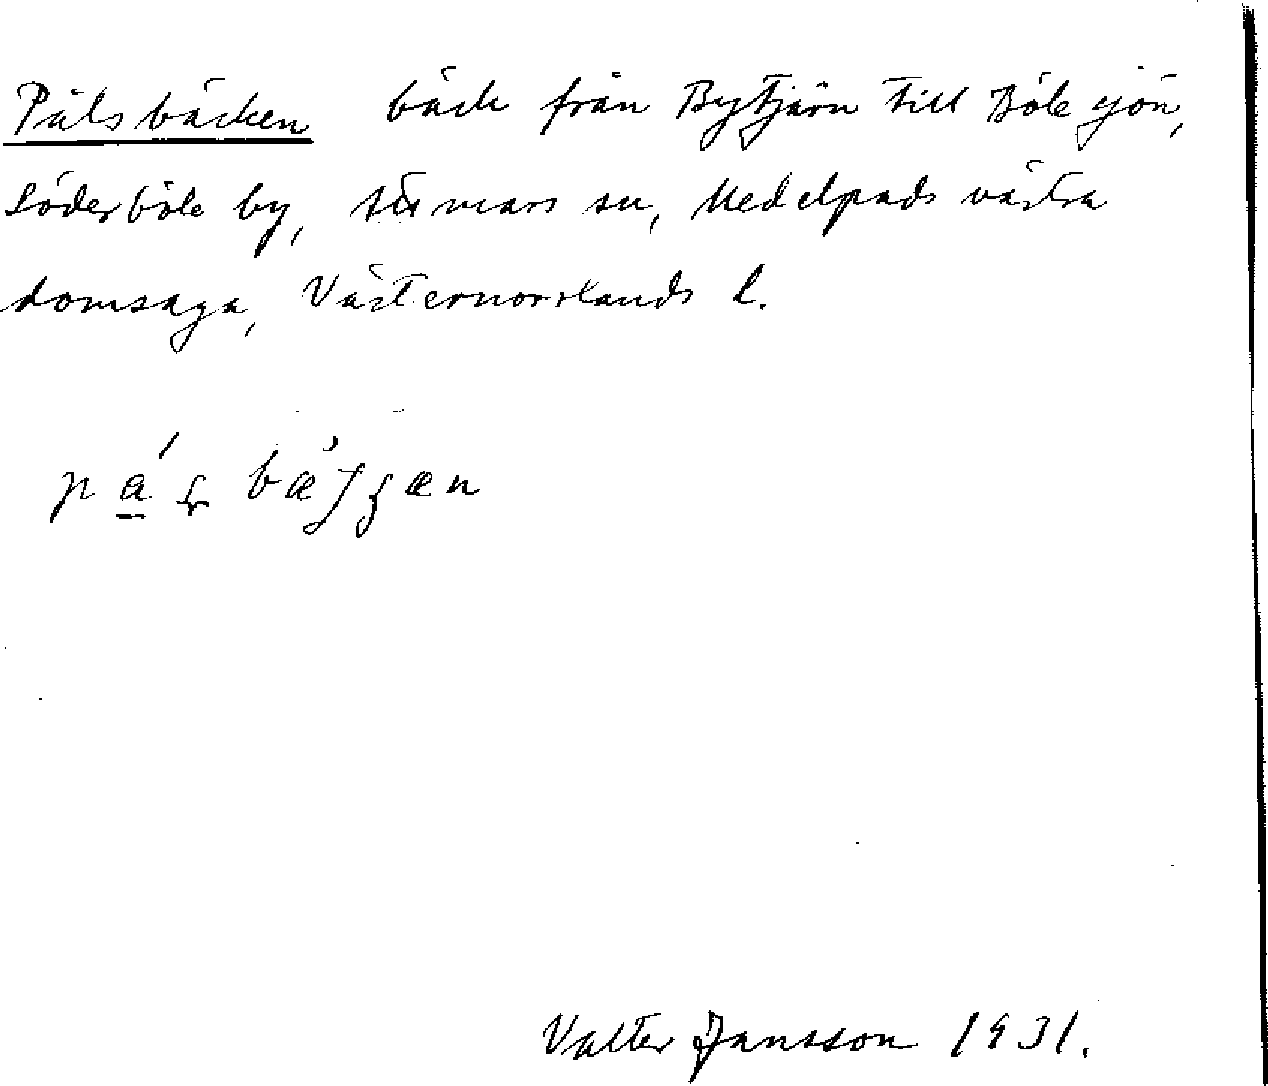 Pålsbäcken bäck från Bytjärn till Bölesjön,
Söderböle by, Stöde sn, Medelpads västra
domsaga, Västernorrlands l.
Valter Jansson 1931.